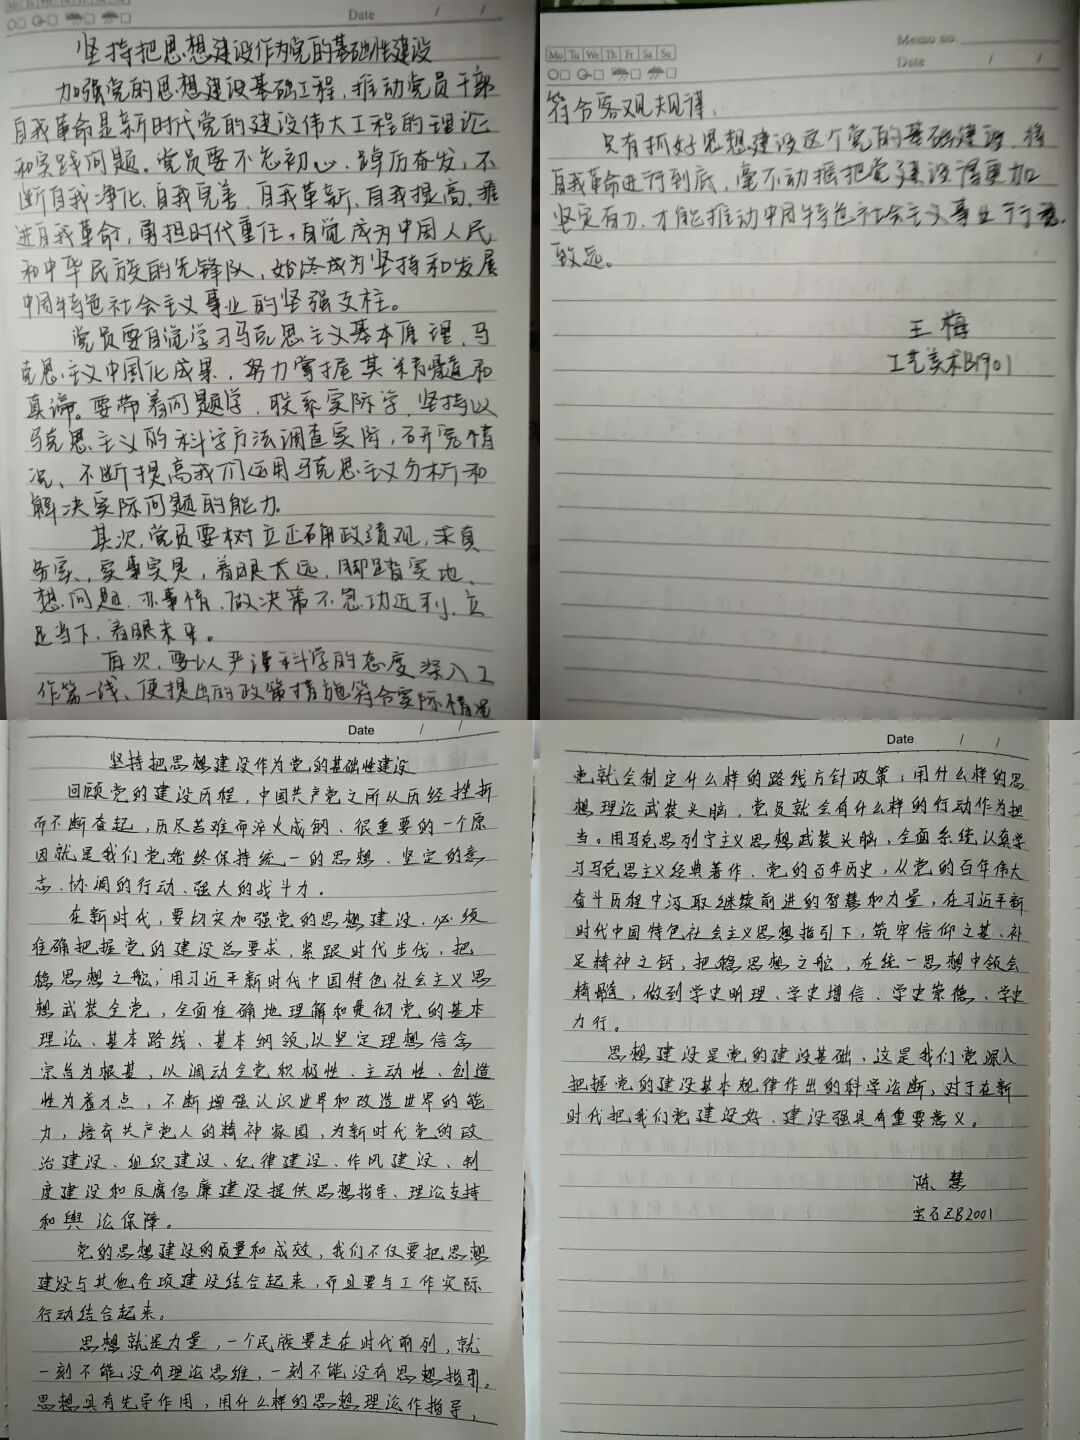 Date / /
坚持把思想建设作为党的基础性建设
加强党的思想建设基础工程,推动党员干部
自我革命是新时代党的建设伟大工程的理论
和实践问题。党员要不忘初心、踔厉奋发,不
断自我净化、自我完善、自我革新、自我提高,推
进自我革命,勇担时代重任,自觉成为中国人民
和中华民族的先锋队,始终成为坚持和发展
中国特色社会主义事业的坚强支柱。
党员要自觉学习马克思主义基本原理,马
克思主义中国化成果,努力掌握其精髓和
真谛。要带着问题学,联系实际学,坚持以
马克思主义的科学方法调查实际,研究情
况、不断提高我们运用马克思主义分析和
解决实际问题的能力。
其次,党员要树立正确政绩观,求真
务实、实事实是,着眼长远,脚踏实地、
想问题、办事情、做决策不急功近利、立
足当下、着眼未来。
再次,要以严谨科学的态度深入工
作第一线、使提出的政策措施符合实际情况
Memo no.
Mo Tu We Th Fr Sa Su
Date / /
符合客观规律。
只有抓好思想建设这个党的基础建设,将
自我革命进行到底,毫不动摇把党建设得更加
坚定有力,才能推动中国特色社会主义事业行稳
致远。
王梅
工艺美术B1901
Date / /
坚持把思想建设作为党的基础性建设
回顾党的建设历程,中国共产党之所从历经挫折
而不断奋起,历尽苦难而淬火成钢、很重要的一个原
因就是我们党始终保持统一的思想、坚定的意
志、协调的行动、强大的战斗力。
在新时代,要切实加强党的思想建设,必须
准确把握党的建设总要求,紧跟时代步伐,把
稳思想之舵;用习近平新时代中国特色社会主义思
想武装全党,全面准确地理解和贯彻党的基本
理论、基本路线、基本纲领,以坚定理想信念
宗旨为根基,以调动全党积极性、主动性、创造
性为着力点,不断增强认识世界和改造世界的能
力,培育共产党人的精神家园,为新时代党的政
治建设、组织建设、纪律建设、作风建设、制
度建设和反腐倡廉建设提供思想指导、理论支持
和舆论保障。
党的思想建设的质量和成效,我们不仅要把思想
建设与其他各项建设结合起来,而且要与工作实际
行动结合起来。
思想就是力量,一个民族要走在时代前列,就
一刻不能没有理论思维,一刻不能没有思想指引。
思想具有先导作用,用什么样的思想理论作指导,
Date / /
党就会制定什么样的路线方针政策;用什么样的思
想理论武装头脑,党员就会有什么样的行动作为担
当。用马克思列宁主义思想武装头脑,全面系统认真学
习马克思主义经典著作、党的百年历史,从党的百年伟大
奋斗历程中汲取继续前进的智慧和力量,在习近平新
时代中国特色社会主义思想指引下,筑牢信仰之基、补
足精神之钙,把稳思想之舵,在统一思想中领会
精髓,做到学史明理、学史增信、学史崇德、学史
力行。
思想建设是党的建设基础,这是我们党深入
把握党的建设基本规律作出的科学论断,对于在新
时代把我们党建设好、建设强具有重要意义。
陈慧
宝石ZB2001